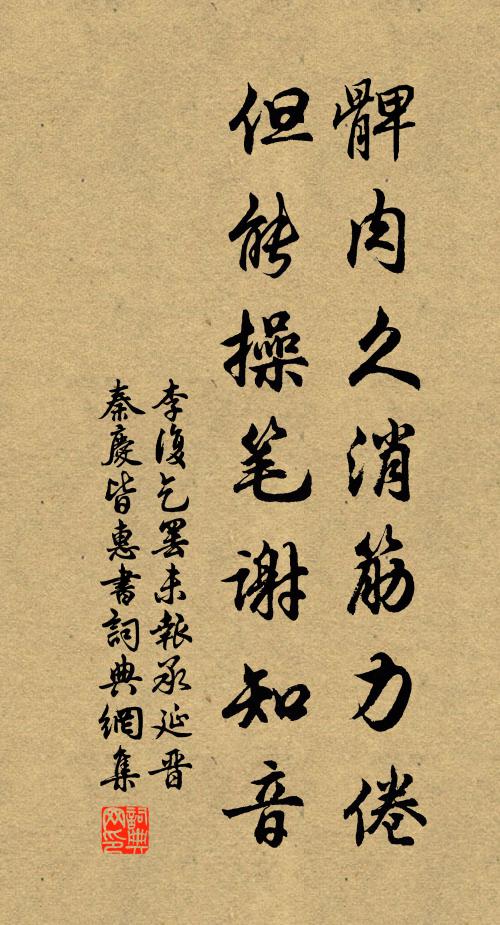 髀肉久消筋力倦
但能操笔謝知音
李復乞罢未報承延晋
秦慶皆惠書詞典網集
詞典
网印